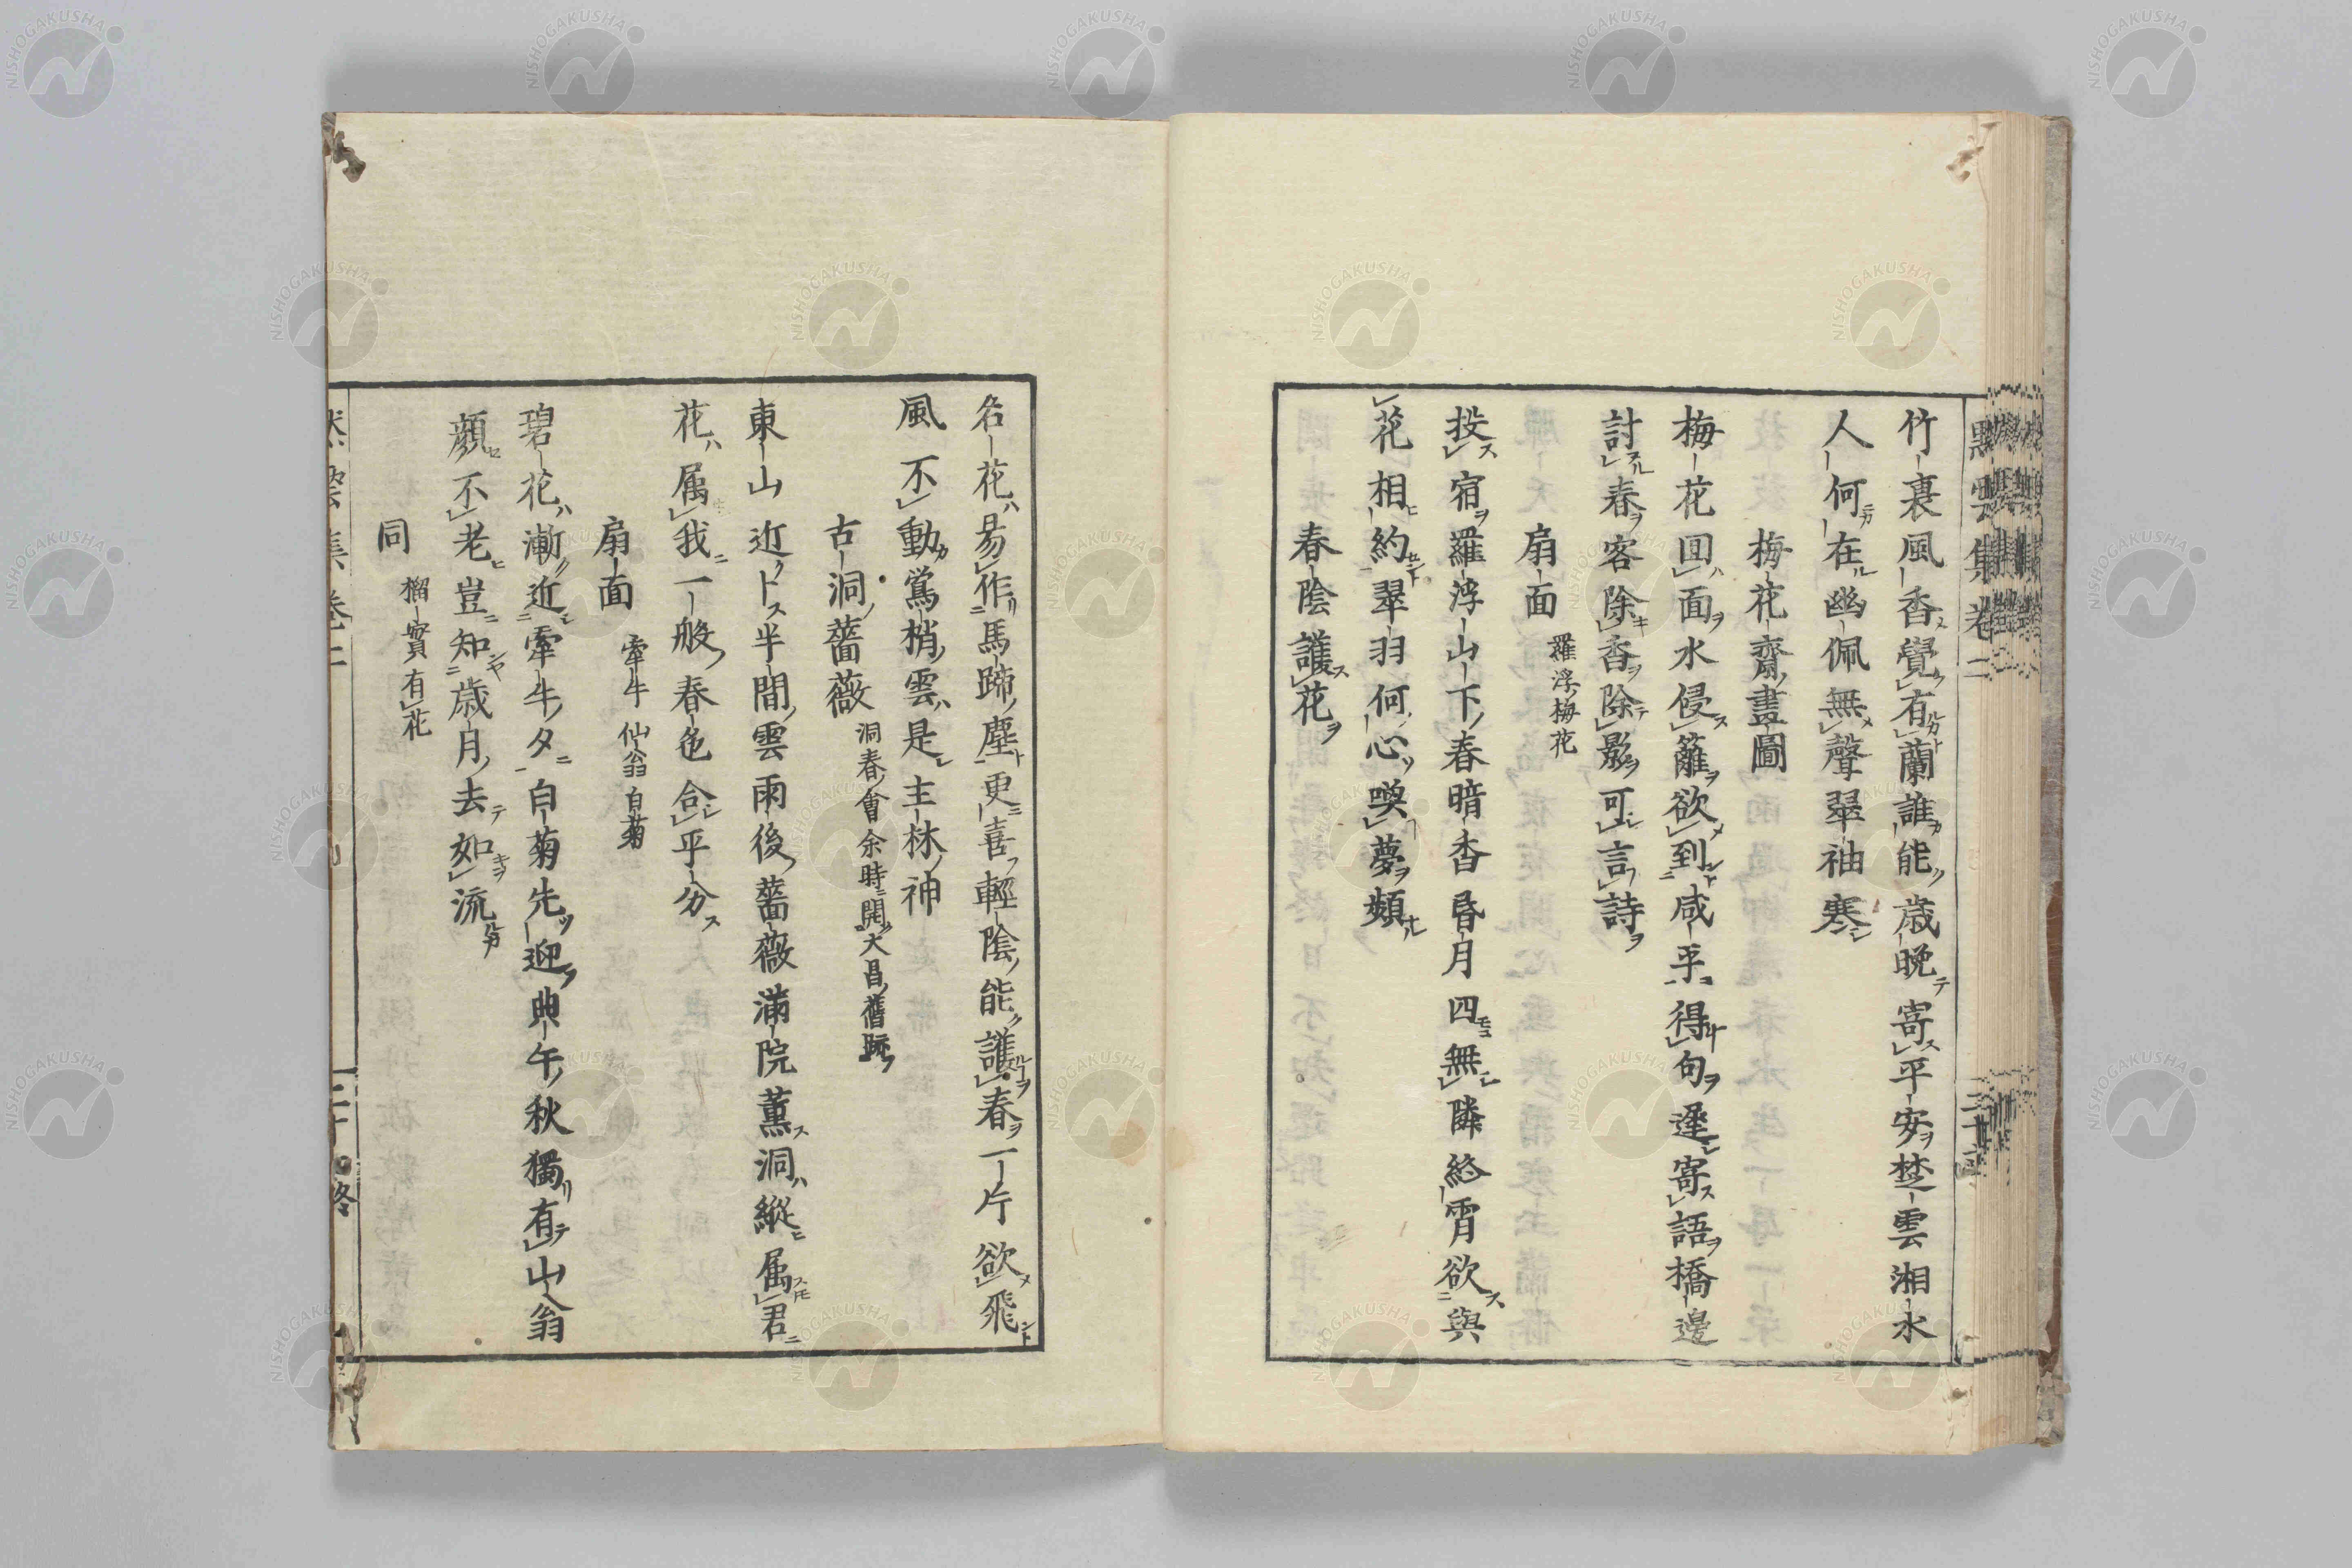 竹裏風香覺有蘭誰能歲晩寄平安楚雲湘水
人何在幽佩無聲翠袖寒
梅花齋畫圖
梅花回面水侵籬欲到咸平得句遲寄語橋邊
討春客除香除影可言詩
扇面 羅浮梅花
投宿羅浮山下春暗香昏月四無隣終霄欲與
花相約翠羽何心喚夢頻
春陰護花
名花易作馬蹄塵更喜輕陰能護春一片欲飛
風不動鶯梢雲是主林神
古洞薔薇 洞春會余時開大昌舊跡
東山近卜半間雲雨後薔薇滿院薰洞縱属君
花属我一般春色合平分
扇面 牽牛 仙翁 白菊
碧花漸近牽牛夕白菊先迎典午秋獨有山翁
顔不老豈知歲月去如流
同 榴實有花
默雲集卷二
NISHOGAKUSHA